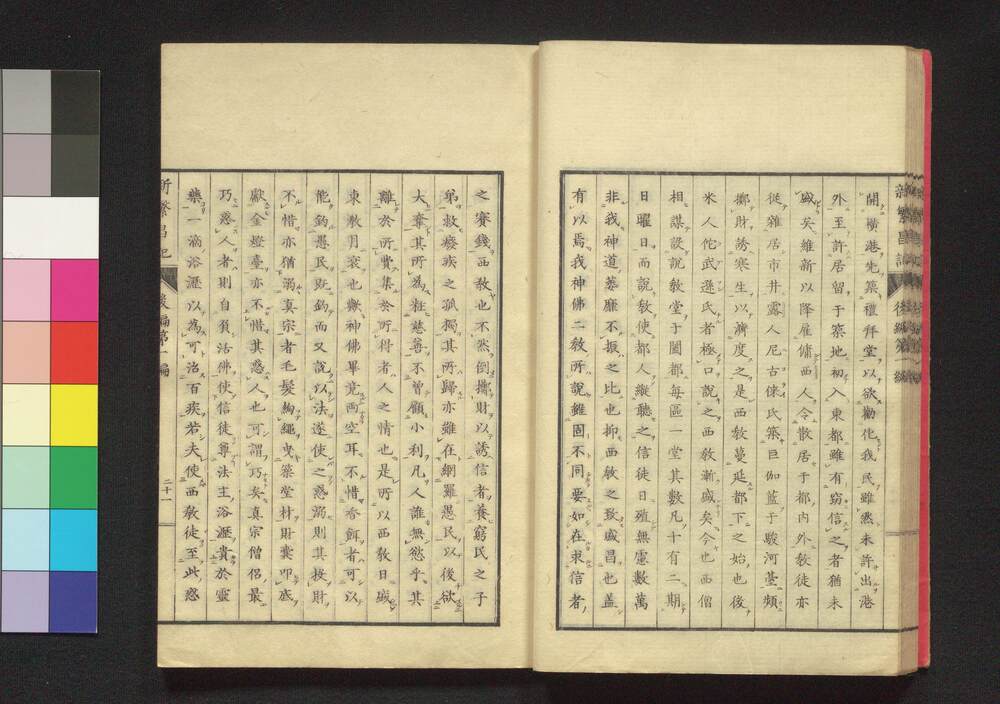 開橫港先築禮拜堂以欲勸化我民雖然未許出港
外至許居留于築地初入東都雖有竊信之者猶未
盛矣維新以降雇傭西人令散居于都內外教徒亦
從雜居市井露人尼古徠氏築巨伽藍于駿河臺頻
擲財誘寒生以濟度之是西教蔓延都下之始也後
米人佗武遜氏者極口說之西教漸盛矣今也西僧
相謀設說教堂于闔都每區一堂其數凡十有二期
日曜日而說教使都人縱聽之信徒日殖無慮數萬
非我神道萎靡不振之比也抑西教之致盛昌也蓋
有以焉我神佛二教所說雖固不同要如在求信者
之賽錢西教也不然倒擲財以誘信者養窮民之子
弟救癈疾之孤獨其所歸亦雖在網羅愚民以後欲
大奪其所為粧慈善不曾顧小利凡人誰無慾乎其
離於所費集於所得者人之情也是所以西教日盛
東教月衰也歟神佛畢竟両空耳不惜香餌者可以
能鈎愚民既鈎而又說以法遂使之惑溺則其投財
不惜亦猶溺真宗者毛髮綯繩曳築堂材財囊叩底
獻金燈臺亦不惜其惑人也可謂巧矣真宗僧侶最
巧惑人者則自負活佛使信徒尊法主浴瀝貴於靈
藥一滴浴瀝以為可治百疾若夫使西教徒至此惑
新繁昌記 後編第一編
二十一